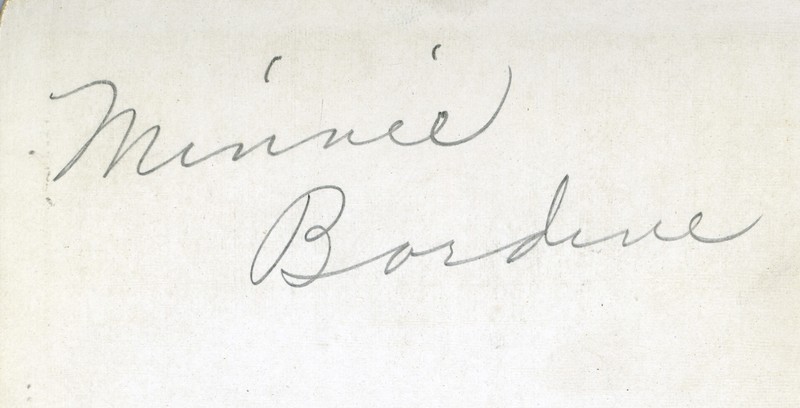 Minnie
Bordine